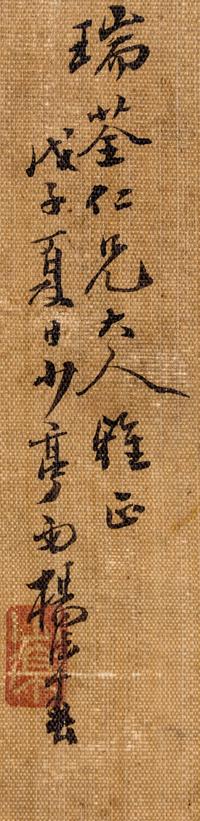 瑞荃仁兄大人雅正
戊子夏日少亭西楊